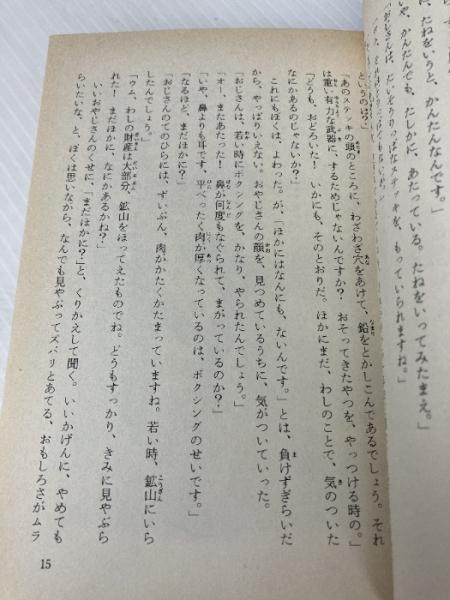 たねをいうと、かんたんなんです。」
や、かんたんでも、たしかに、あたっている。たねをいってみたまえ。」
「おじさんは、たいそうりっぱなステッキを、もっていられますね。」
というのは？」
「あのステッキの頭のところに、わざわざ穴をあけて、鉛をとかしこんであるでしょう。それ
は重い有力な武器に、するためじゃないんですか？　おそってきたやつを、やっつける時の。」
「どうも、おどろいた！　いかにも、そのとおりだ。ほかにまだ、わしのことで、気のついた
なにかあるのじゃないか？」
これにもぼくは、よわった。が、「ほかにはなんにも、ないんです。」とは、負けずぎらいだ
から、やっぱりいえない。おやじさんの顔を、見つめているうちに、気がついていった。
「おじさんは、若い時にボクシングを、かなり、やられたんでしょう。」
「オー、またあたった！　鼻が何度もなぐられて、まがっているのか？」
「いや、鼻よりも耳です、平べったく肉が厚くなっているのは、ボクシングのせいです。」
「なるほど、まだほかに？」
「おじさんのてのひらには、ずいぶん、肉がかたくかたまっていますね。若い時、鉱山にいら
したんでしょう。」
「ウム、わしの財産は大部分、鉱山をほってえたものでね。どうもすっかり、きみに見やぶら
れた！　まだほかに、なにかあるかね？」
いいおやじさんのくせに、「まだほかに？」と、くりかえして聞く。いいかげんに、やめても
らいたいな、と、ぼくは思いながら、なんでも見やぶってズバリとあてる、おもしろさがムラ
15